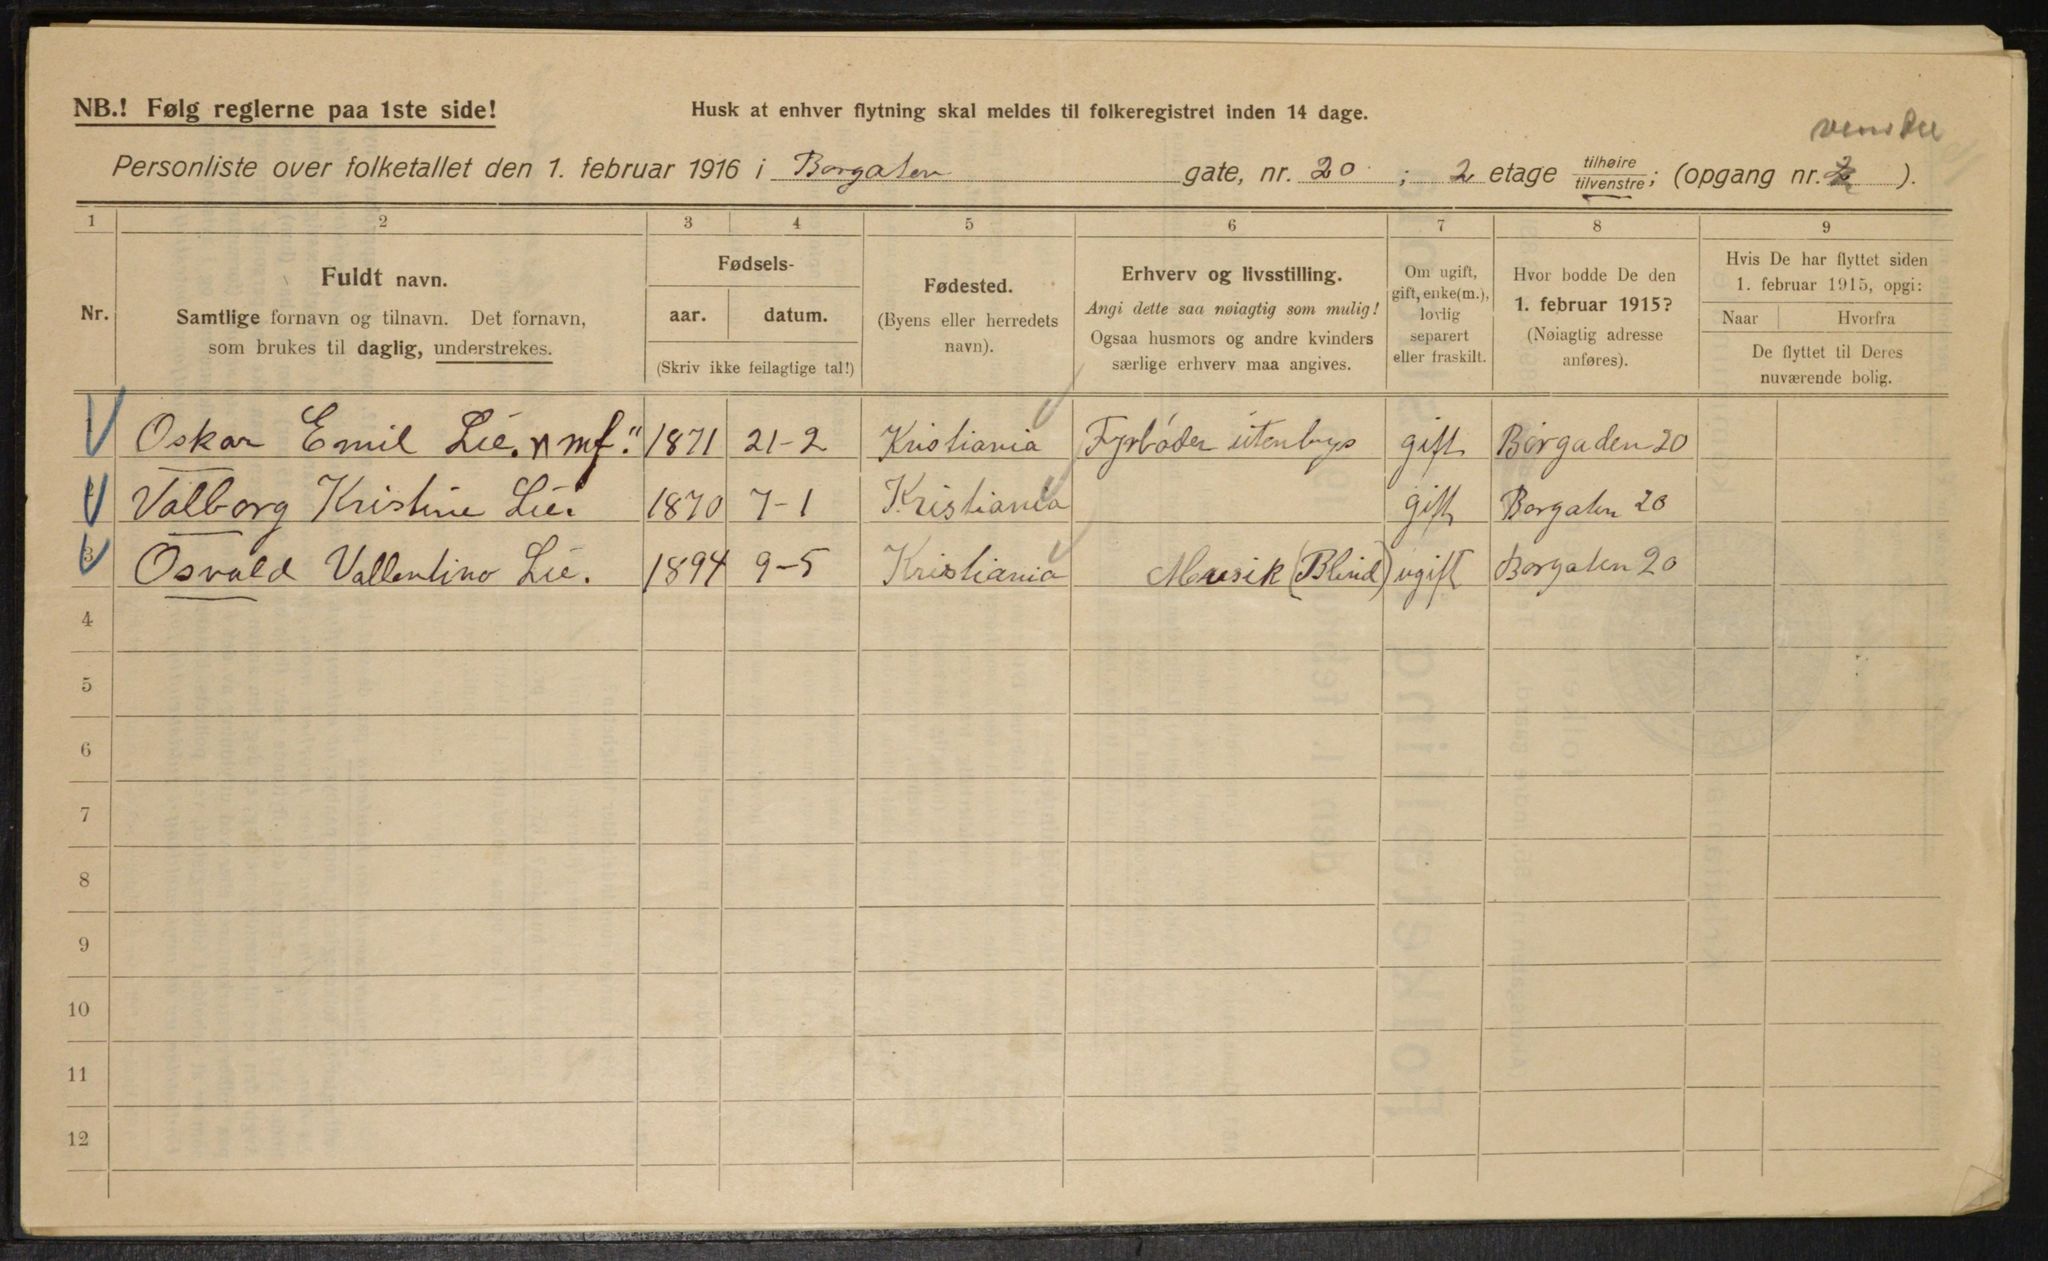 NB.! Følg reglerne paa 1ste side! Husk at enhver flytning skal meldes til folkeregistret inden 14 dage.
venstre
Personliste over folketallet den 1. februar 1916 i Borgaten gate, nr. 20 ; 2 etage tilhøire/tilvenstre; (opgang nr. ).
1 2 3 4 5 6 7 8 9
Nr.
Fuldt navn.
Samtlige fornavn og tilnavn. Det fornavn,
som brukes til daglig, understrekes.
Fødsels-
aar. datum.
(Skriv ikke feilagtige tal!)
Fødested.
(Byens eller herredets
navn).
Erhverv og livsstilling.
Angi dette saa nøiagtig som mulig!
Ogsaa husmors og andre kvinders
særlige erhverv maa angives.
Om ugift,
gift, enke(m.),
lovlig
separert
eller fraskilt.
Hvor bodde De den
1. februar 1915?
(Nøiagtig adresse
anføres).
Hvis De har flyttet siden
1. februar 1915, opgi:
Naar Hvorfra
De flyttet til Deres
nuværende bolig.
Oskar Emil Lie. "mf." 1871 21-2 Kristiania Fyrbøder utenbys gift Borgaden 20
Valborg Kristine Lie. 1870 7-1 Kristiania gift Borgaten 20
3 Osvald Vallentino Lie. 1894 9-5 Kristiania Musik (Blind) ugift Borgaten 20
4
5
6
7
8
9
10
11
12